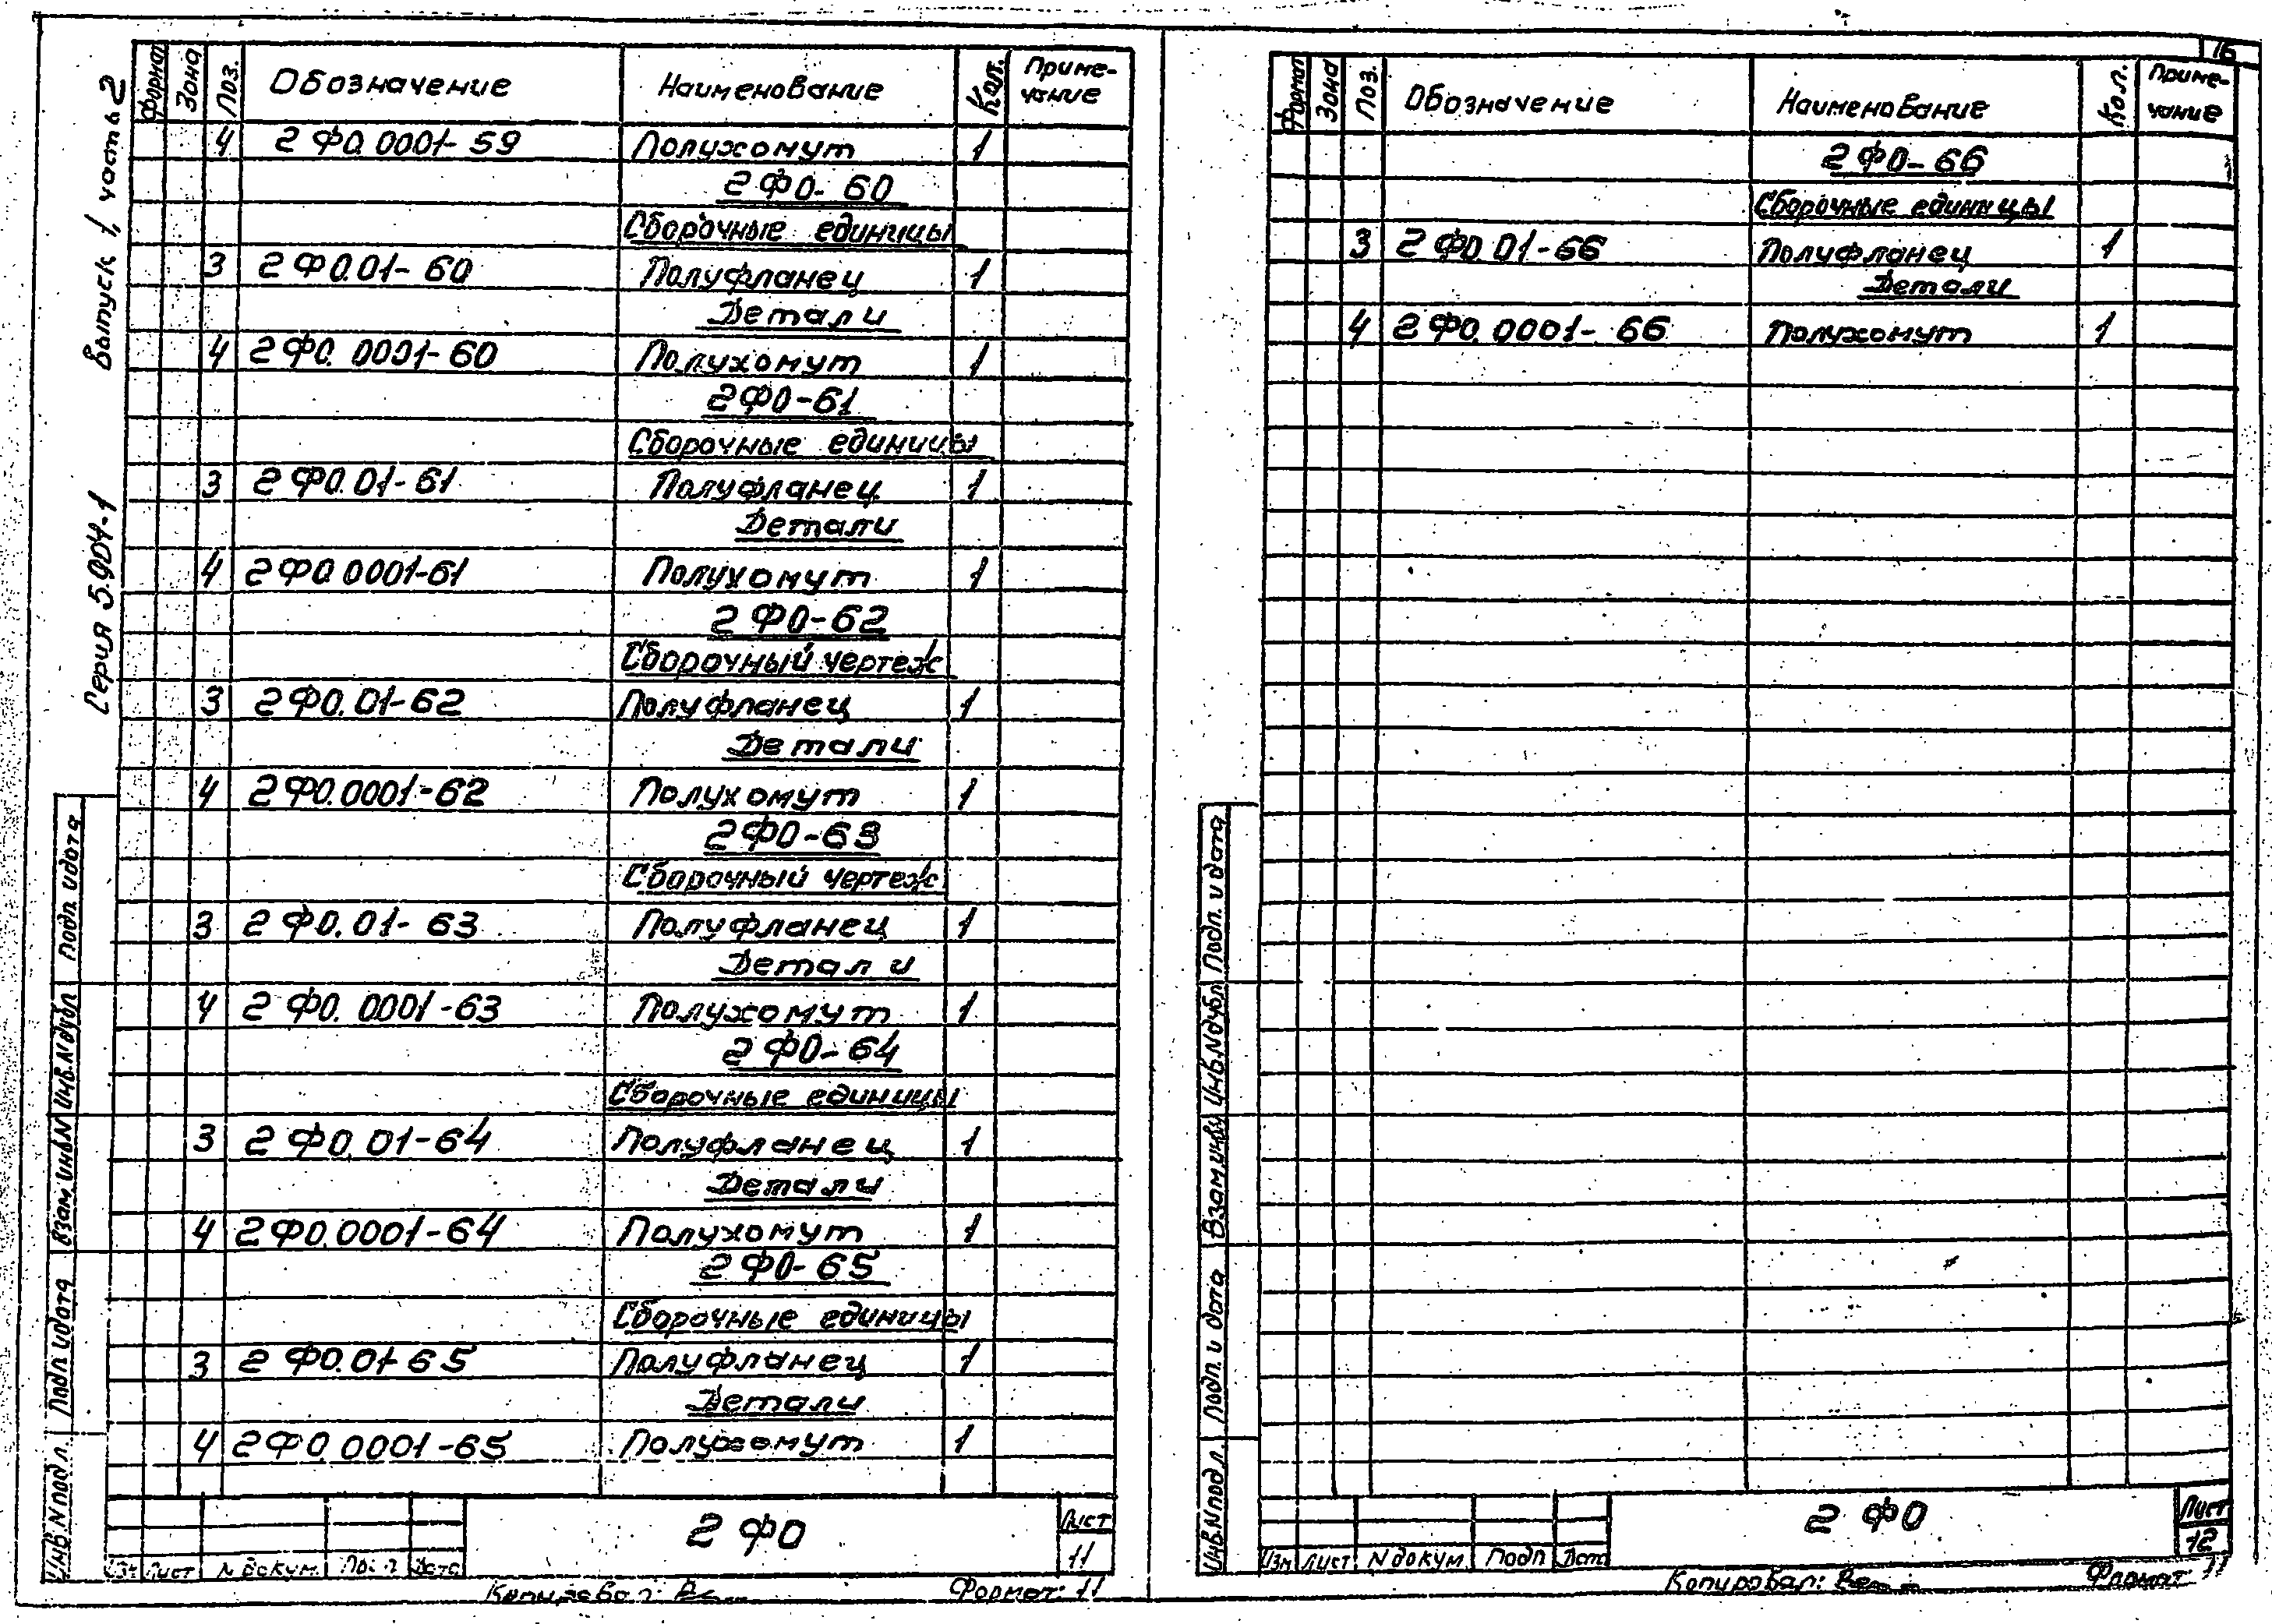 Серия 5.904-1 Выпуск 1, часть 2
Формат Зона Поз. Обозначение Наименование Кол. Приме-чание
4 2 ФО.0001-59 Полухомут 1
2 ФО-60
Сборочные единицы
3 2 ФО.01-60 Полуфланец 1
Детали
4 2 ФО.0001-60 Полухомут 1
2 ФО-61
Сборочные единицы
3 2 ФО.01-61 Полуфланец 1
Детали
4 2 ФО.0001-61 Полухомут 1
2 ФО-62
Сборочный чертеж
3 2 ФО.01-62 Полуфланец 1
Детали
4 2 ФО.0001-62 Полухомут 1
2 ФО-63
Сборочный чертеж
3 2 ФО.01-63 Полуфланец 1
Детали
4 2 ФО.0001-63 Полухомут 1
2 ФО-64
Сборочные единицы
3 2 ФО.01-64 Полуфланец 1
Детали
4 2 ФО.0001-64 Полухомут 1
2 ФО-65
Сборочные единицы
3 2 ФО.01-65 Полуфланец 1
Детали
4 2 ФО.0001-65 Полухомут 1
Инв.N подл. Подп и дата Взам инв.N Инв.N дубл Подп. и дата
Изм Лист N докум. Подп Дата
2 ФО
Лист
11
Копировал:
Формат: 11
16
Формат Зона Поз. Обозначение Наименование Кол. Приме-чание
2 ФО-66
Сборочные единицы
3 2 ФО.01-66 Полуфланец 1
Детали
4 2 ФО.0001-66 Полухомут 1
Инв.N подл. Подп. и дата Взам.инв Инв.N дубл Подп. и дата
Изм Лист N докум. Подп Дата
2 ФО
Лист
12
Копировал:
Формат 11